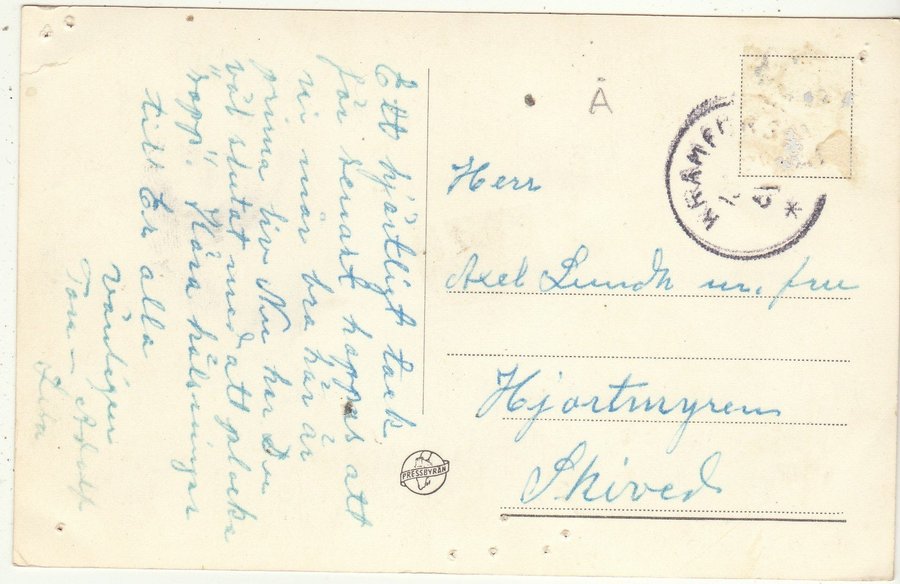 Ett hjärtligt tack
för senast hoppas att
ni mår bra här är
prima liv Nu har Du
väl slutat med att plocka
"sopp". Nära hälsningar
till Er alla
Vänligen
Tora - Adolf
A
KRAMF
Herr
Axel Lundh m. fru
Hjortmyren
Skived
PRESSBYRÅN